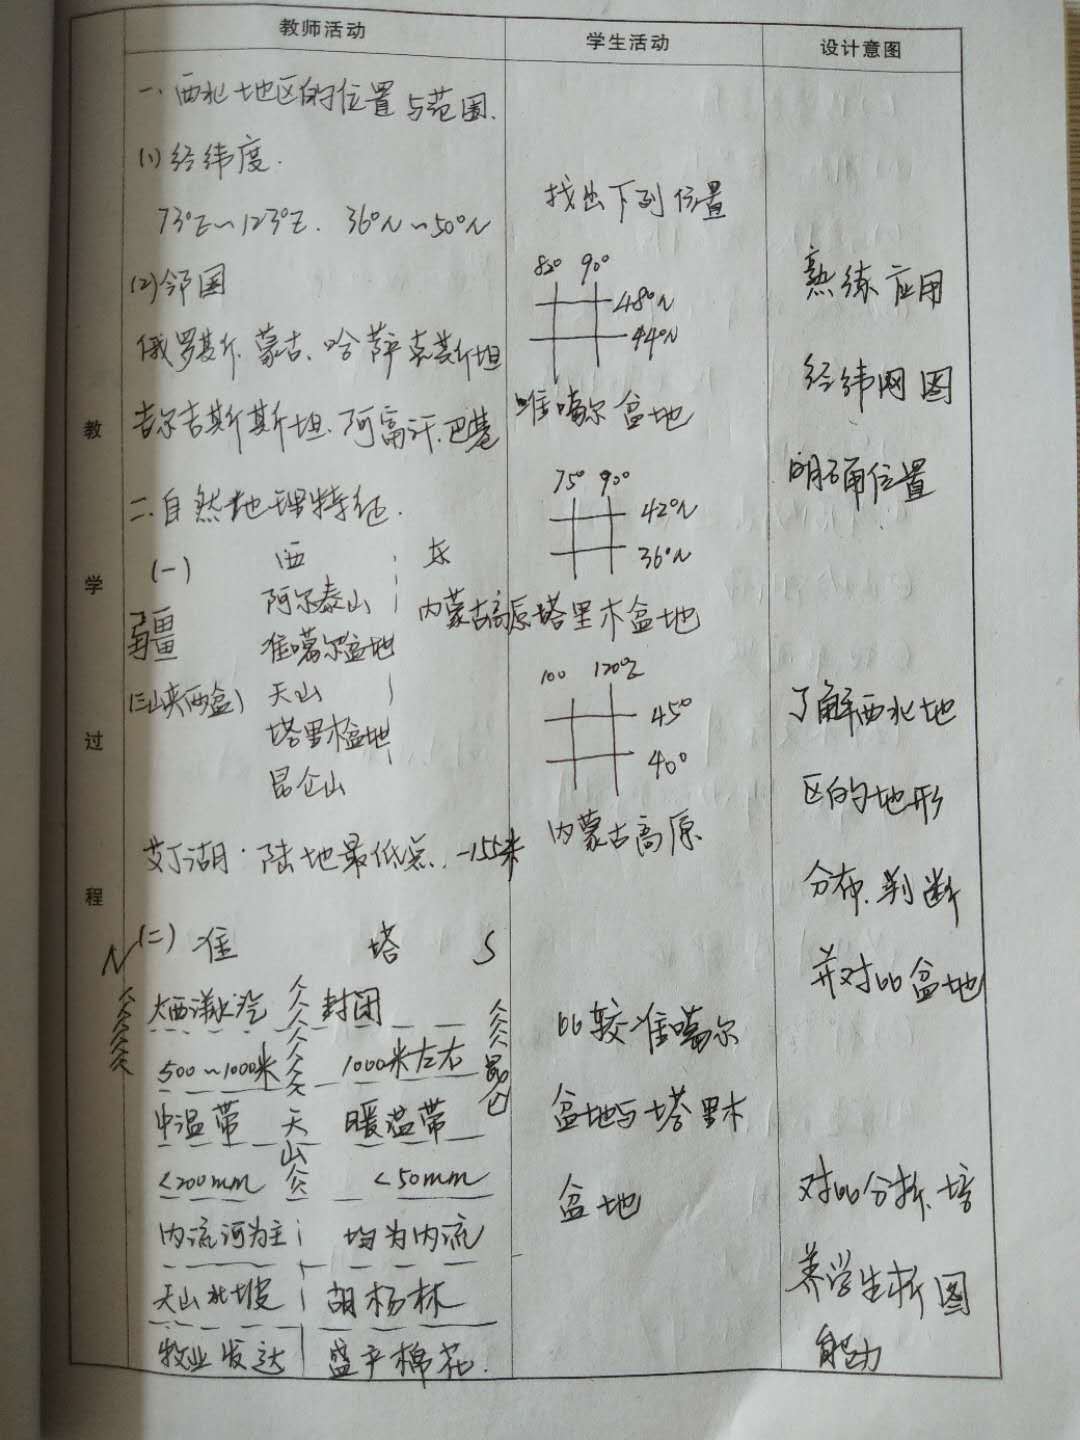 教师活动
学生活动
设计意图
教学过程
一、西北地区的位置与范围.
(1)经纬度.
73°E~123°E. 36°N~50°N
(2)邻国
俄罗斯、蒙古、哈萨克斯坦
吉尔吉斯斯坦、阿富汗、巴基
二.自然地理特征.
(一) 西 东
阿尔泰山 内蒙古高原
疆 准噶尔盆地
(三山夹两盆) 天山
塔里木盆地
昆仑山
艾丁湖:陆地最低点. -155米
(二) 准 塔
N S
大西洋水汽 封闭
500~1000米 1000米左右
中温带 暖温带
<200mm <50mm
天山
昆仑
内流河为主 均为内流
天山北坡 胡杨林
牧业发达 盛产棉花.
找出下列位置
82° 90°
48°N
44°N
准噶尔盆地
75° 90°
42°N
36°N
塔里木盆地
100 120°E
45°
40°
内蒙古高原
比较准噶尔
盆地与塔里木
盆地
熟练应用
经纬网图
明确位置
了解西北地
区的地形
分布.判断
并对比盆地
对比分析、培
养学生析图
能力